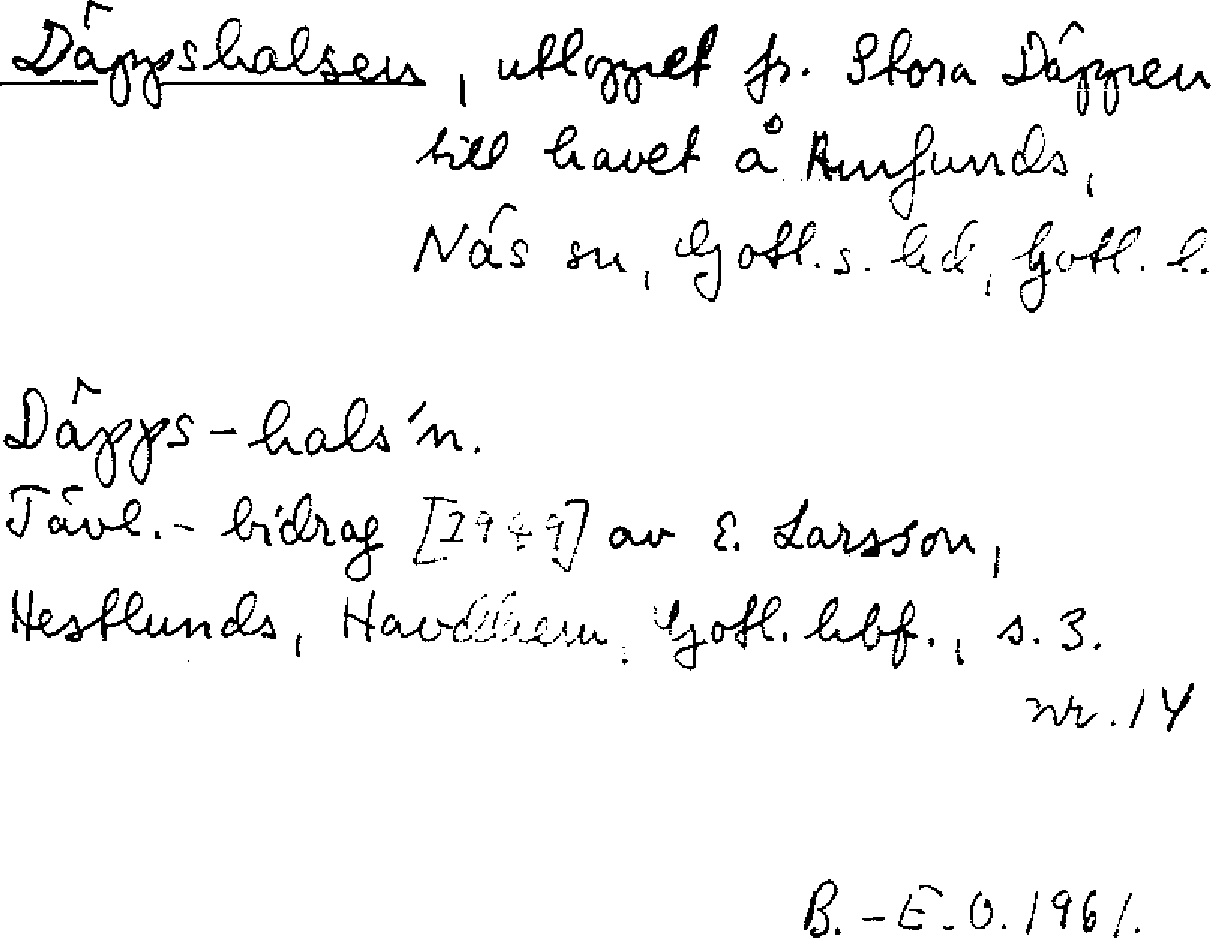 Däppshalsen, utloppet fr. Stora Däppen
till havet å Amfunds,
Näs sn, Gotl. s. hd, Gotl. l.
Däpps-hals'n.
Tävl.- bidrag [1949] av E. Larsson,
Hestlunds, Havdhem, Gotl. hbf., s. 3.
nr. 14
B.-E.O. 1961.